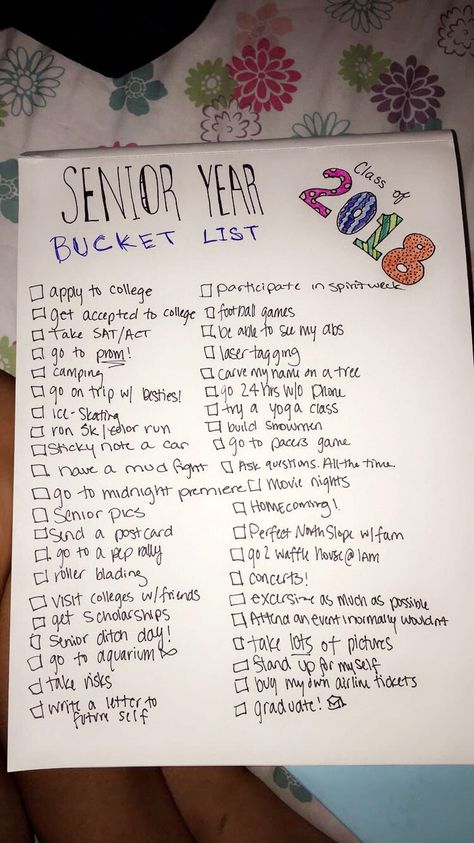 SENIOR YEAR
BUCKET LIST
Class of
2018
apply to college
get accepted to college
Take SAT/ACT
go to prom!
camping
go on trip w/ besties!
ice-skating
run 5k/color run
Sticky note a car
have a mud fight
go to midnight premiere
Senior pics
Send a postcard
go to a pep rally
roller blading
visit colleges w/friends
get scholarships
Senior ditch day!
go to aquarium
take risks
write a letter to
future self
participate in spirit week
football games
be able to see my abs
laser tagging
Carve my name on a tree
go 24 hrs w/o phone
try a yoga class
build snowmen
go to pacers game
Ask questions. All the time.
movie nights
HOMEcoming!
Perfect North Slope w/fam
go 2 waffle house @ 1AM
concerts!
excersise as much as possible
Attend an event I normally wouldnt
take lots of pictures
Stand up for myself
buy my own airline tickets
graduate!